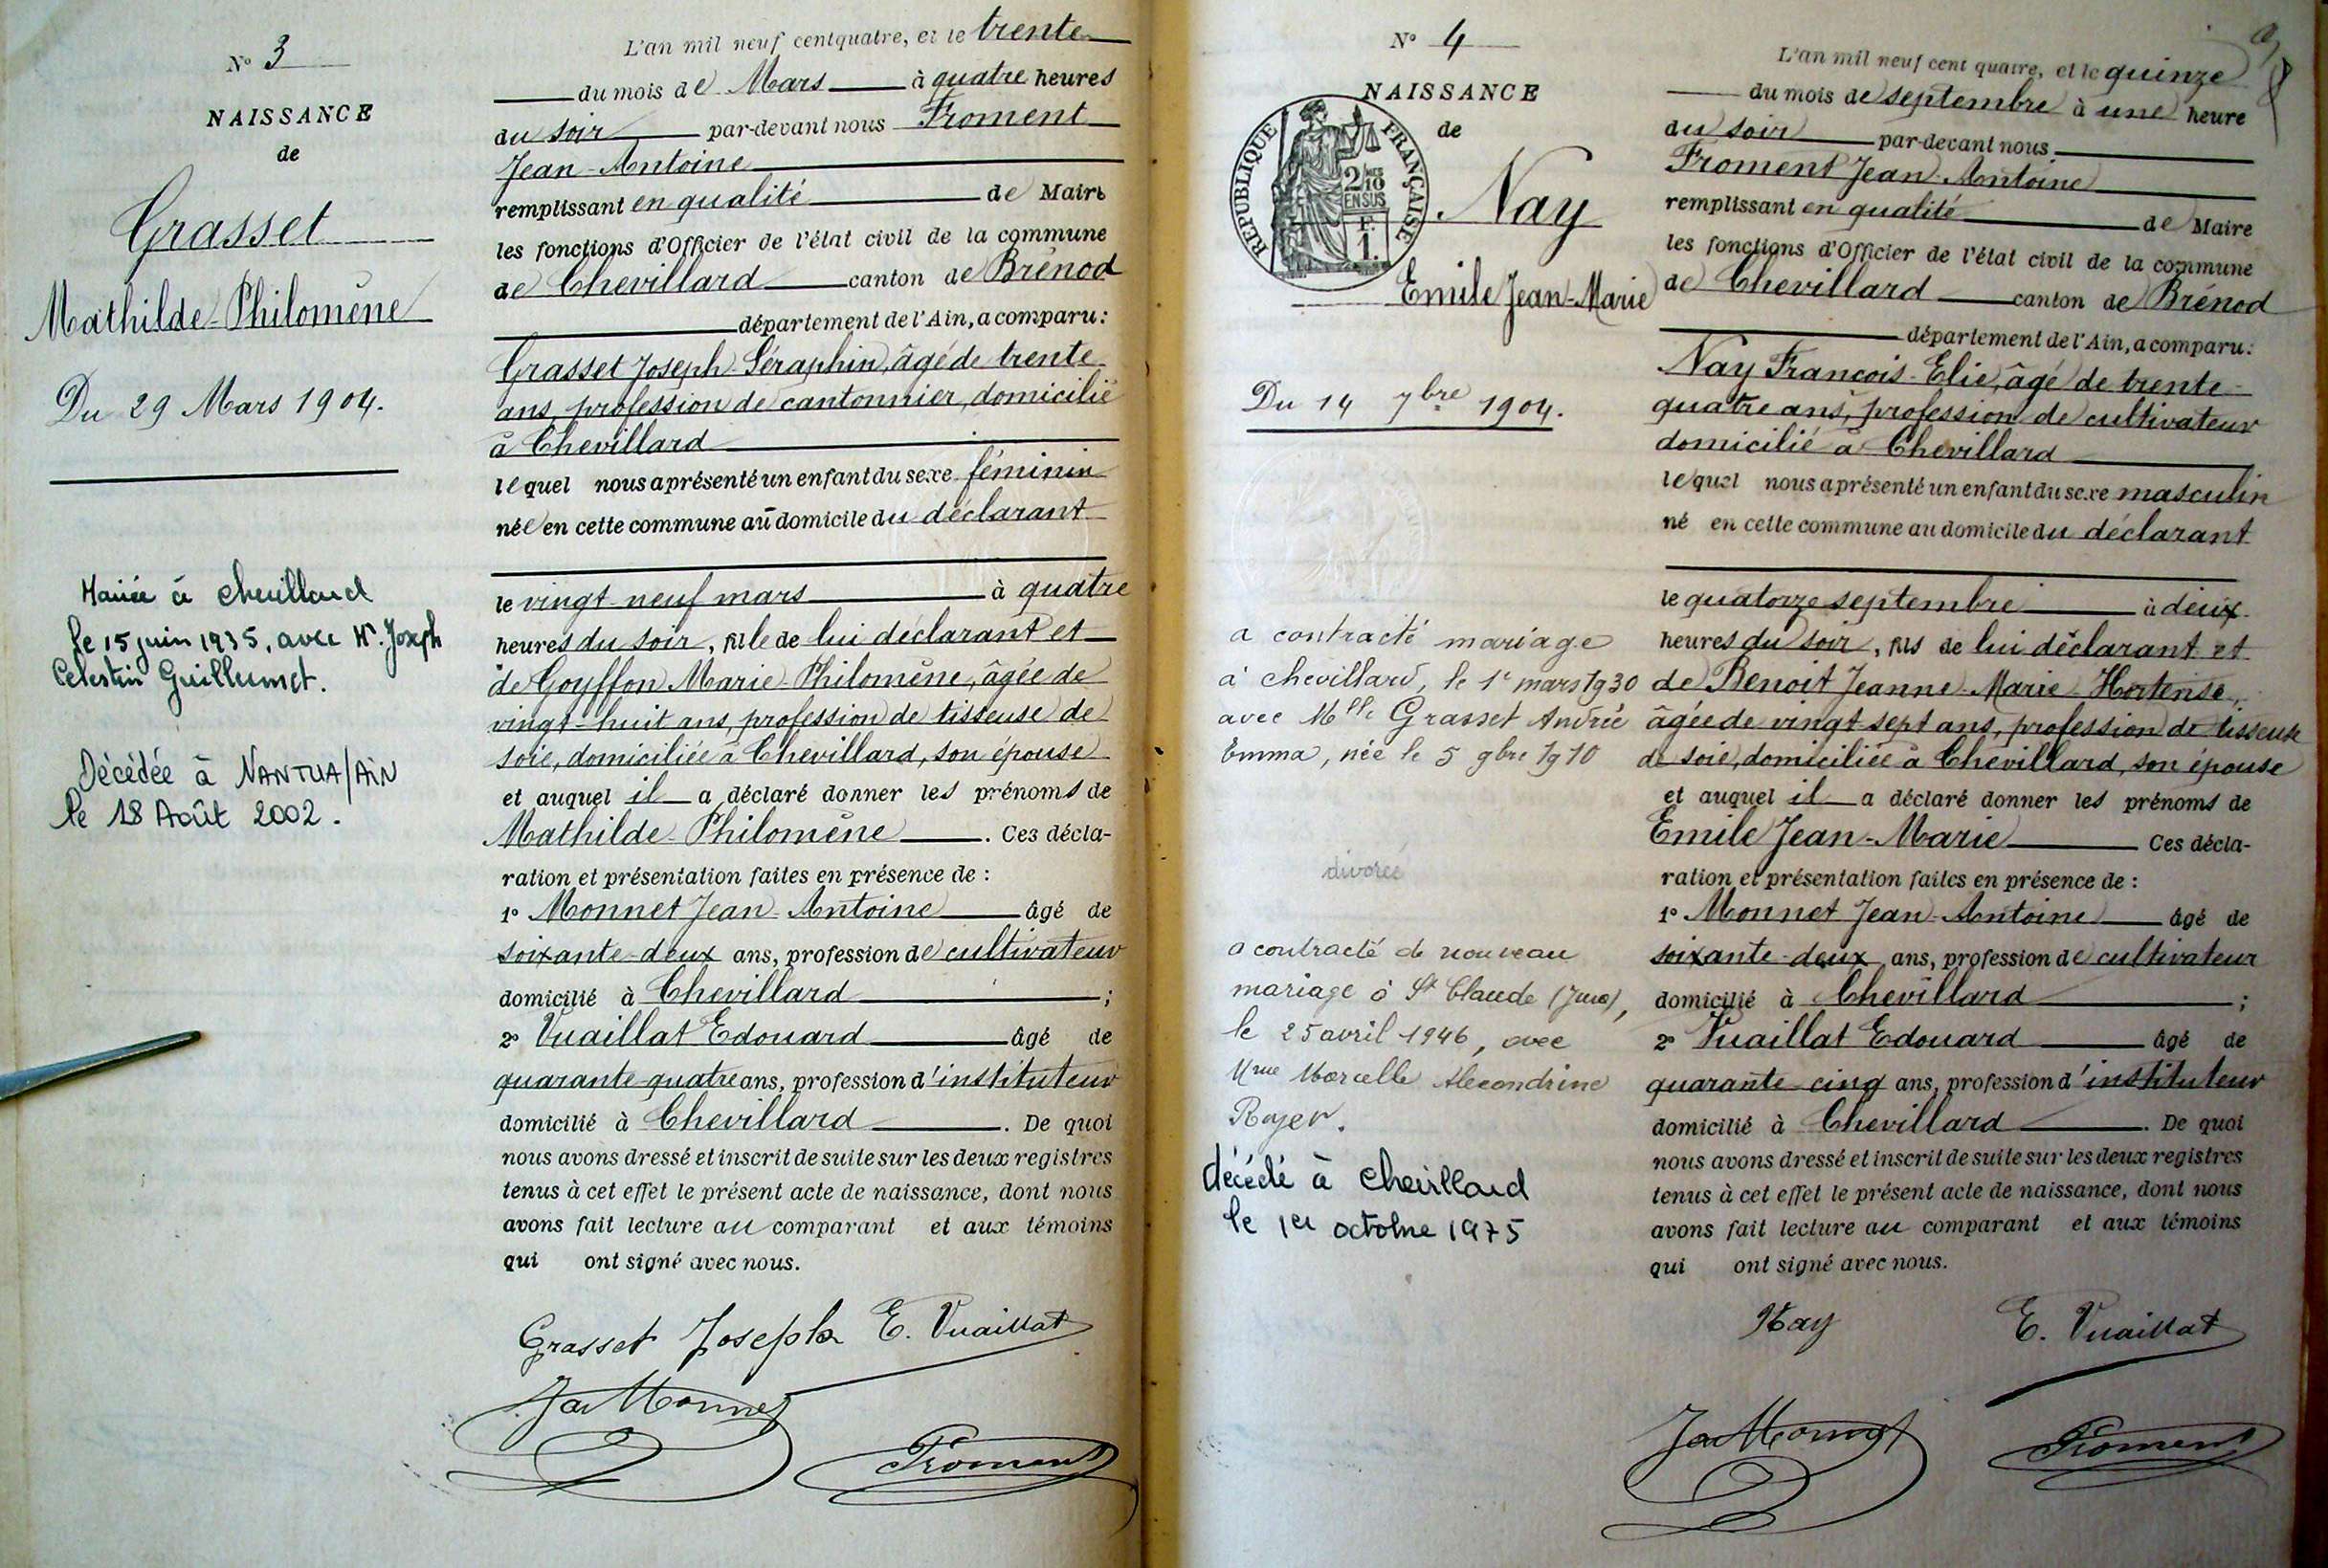 N° 3
NAISSANCE
de
Grasset
Mathilde-Philomène
Du 29 Mars 1904.
Mariée à Chevillard
le 15 juin 1935, avec Mr. Joseph
Celestin Guillermet.
Décédée à NANTUA/AIN
le 18 Août 2002.
L'an mil neuf cent quatre, et le trente
du mois de Mars à quatre heures
du soir par-devant nous Froment
Jean-Antoine
remplissant en qualité de Maire
les fonctions d'Officier de l'état civil de la commune
de Chevillard canton de Brénod
département de l'Ain, a comparu:
Grasset Joseph-Séraphin, âgé de trente
ans, profession de cantonnier, domicilié
à Chevillard
lequel nous a présenté un enfant du sexe féminin
née en cette commune au domicile du déclarant
le vingt-neuf mars à quatre
heures du soir, fille de lui déclarant et
de Goyffon Marie-Philomène, âgée de
vingt-huit ans, profession de tisseuse de
soie, domiciliée à Chevillard, son épouse
et auquel il a déclaré donner les prénoms de
Mathilde-Philomène. Ces décla-
ration et présentation faites en présence de :
1° Monnet Jean-Antoine âgé de
soixante-deux ans, profession de cultivateur
domicilié à Chevillard ;
2° Vuaillat Edouard âgé de
quarante-quatre ans, profession d'instituteur
domicilié à Chevillard. De quoi
nous avons dressé et inscrit de suite sur les deux registres
tenus à cet effet le présent acte de naissance, dont nous
avons fait lecture au comparant et aux témoins
qui ont signé avec nous.
Grasset Joseph E. Vuaillat
Ja Monnet
Froment
N° 4
NAISSANCE
de
REPUBLIQUE FRANÇAISE
2/10
EN SUS
F.
1.
Nay
Emile Jean-Marie
Du 14 7bre 1904.
a contracté mariage
à Chevillard, le 1er mars 1930
avec Mlle Grasset Andrée
Emma, née le 5 9bre 1910
divorcé
a contracté de nouveau
mariage à St Claude (Jura),
le 25 avril 1946, avec
Mme Marcelle Alexandrine
Royer.
décédé à Chevillard
le 1er octobre 1975
L'an mil neuf cent quatre, et le quinze
du mois de septembre à une heure
du soir par-devant nous
Froment Jean-Antoine
remplissant en qualité de Maire
les fonctions d'Officier de l'état civil de la commune
de Chevillard canton de Brénod
département de l'Ain, a comparu:
Nay François-Elie, âgé de trente-
quatre ans, profession de cultivateur
domicilié à Chevillard
lequel nous a présenté un enfant du sexe masculin
né en cette commune au domicile du déclarant
le quatorze septembre à deux
heures du soir, fils de lui déclarant et
de Benoit Jeanne-Marie-Hortense,
âgée de vingt-sept ans, profession de tisseuse
de soie, domiciliée à Chevillard, son épouse
et auquel il a déclaré donner les prénoms de
Emile Jean-Marie Ces décla-
ration et présentation faites en présence de :
1° Monnet Jean-Antoine âgé de
soixante-deux ans, profession de cultivateur
domicilié à Chevillard ;
2° Vuaillat Edouard âgé de
quarante-cinq ans, profession d'instituteur
domicilié à Chevillard. De quoi
nous avons dressé et inscrit de suite sur les deux registres
tenus à cet effet le présent acte de naissance, dont nous
avons fait lecture au comparant et aux témoins
qui ont signé avec nous.
Nay E. Vuaillat
Ja Monnet
Froment